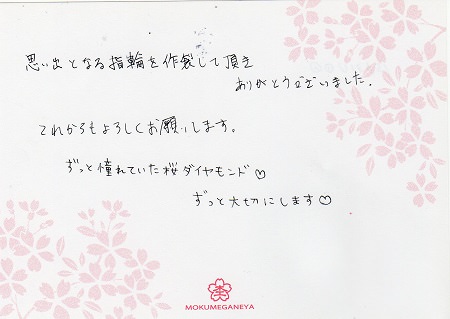 思い出となる指輪を作製して頂き
ありがとうございました。
これからもよろしくお願いします。
ずっと憧れていた桜ダイヤモンド♡
ずっと大切にします♡
MOKUMEGANEYA